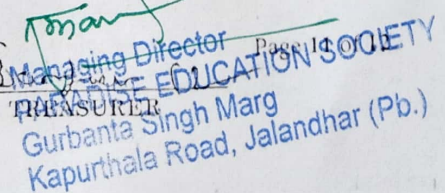 Managing Director
Page 11 of 15
PARADISE EDUCATION SOCIETY
TREASURER
Gurbanta Singh Marg
Kapurthala Road, Jalandhar (Pb.)